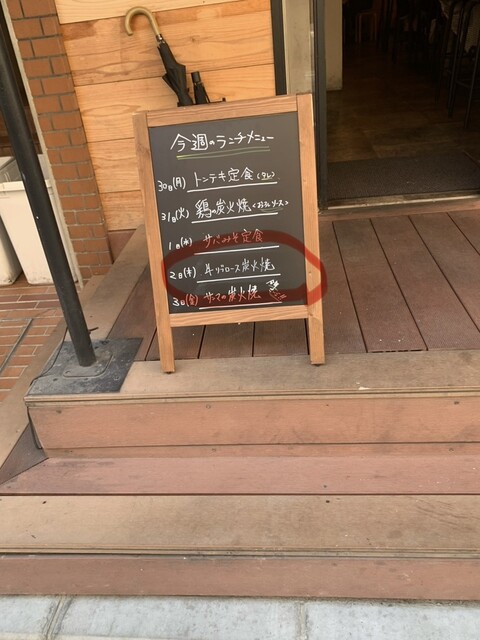 今週のランチメニュー
30日(月) トンテキ定食(タレ)
31日(火) 鶏の炭火焼
1日(水) サバみそ定食
2日(木) 牛リブロース炭火焼
3日(金) サンマの炭火焼